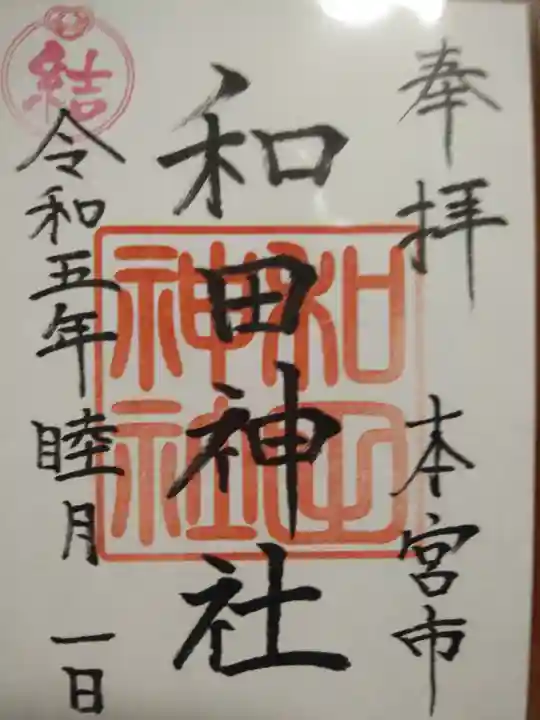 奉拝 本宮市
和田神社
和田神社
令和五年睦月 一日
結